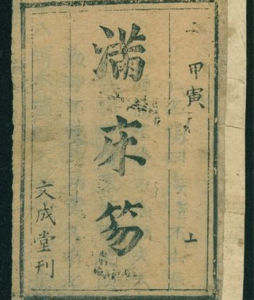 甲寅 上
滿床笏
文成堂刊